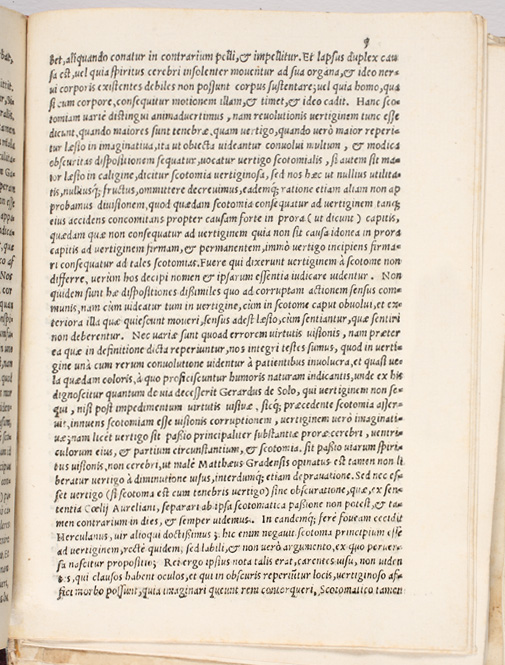 9
bet, aliquando conatur in contrarium pelli, & impellitur. Et lapsus duplex cau
sa est, uel quia spiritus cerebri insolenter mouentur ad sua organa, & ideo ner-
ui corporis existentes debiles non possunt corpus sustentare; uel quia homo, qua
si cum corpore, consequitur motionem illam, & timet, & ideo cadit. Hanc sco-
tomiam varie distingui animaduertimus, nam reuolutionis vertiginem tunc esse
dicunt, quando maiores sunt tenebræ, quam vertigo, quando verò maior reperi-
tur læsio in imaginatiua, ita ut obiecta uideantur conuolui multum, & modica
obscuritas dispositionem sequatur, uocatur vertigo scotomialis, si autem sit ma-
ior læsio in caligine, dicitur scotomia vertiginosa, sed nos hæc ut nullius utilita-
tis, nullusq; fructus, ommittere decreuimus, eademq; ratione etiam aliam non ap
probamus diuisionem, quod quædam scotomia consequatur ad vertiginem tanq;
eius accidens concomitans propter causam forte in prora ( ut dicunt ) capitis,
quædam quæ non consequatur ad vertiginem quia non sit causa idonea in prora
capitis ad vertiginem firmam, & permanentem, immò vertigo incipiens firma-
ri consequatur ad tales scotomias. Fuere qui dixerunt vertiginem à scotome non
differre, verùm hos decipi nomen & ipsarum essentia iudicare uidentur. Non
quidem sunt hæ dispositiones dißimiles quo ad corruptam actionem sensus com-
munis, nam cùm uideatur tum in vertigine, cùm in scotome caput obuolui, et ex-
teriora illa quæ quiescunt moueri, sensus adest læsio, cùm sentiantur, quæ sentiri
non deberentur. Nec variæ sunt quoad errorem virtutis uisionis, nam præter
ea quæ in definitione dicta reperiuntur, nos integri testes sumus, quod in verti-
gine unà cum rerum conuolutione uidentur à patientibus inuolucra, et quasi ue-
la quædam coloris, à quo proficiscuntur humoris naturam indicantis, unde ex his
dignoscitur quantum de via decesserit Gerardus de Solo, qui vertiginem non se-
qui, nisi post impedimentum virtutis uisiuæ, sicq; præcedente scotomia asseru-
it, innuens scotomiam esse uisionis corruptionem, vertiginem verò imaginati-
uæ; nam licèt vertigo sit paßio principaliter substantiæ proræ cerebri, uentri
culorum eius, & partium circunstantium, & scotomia, sit paßio uiarum spiri-
tus uisionis, non cerebri, ut male Matthæus Gradensis opinatus est tamen non li
beratur vertigo à diminutione uisus, interdumq; etiam deprauatione. Sed nec es-
set vertigo (si scotoma est cum tenebris vertigo) sine obscuratione, quæ, ex sen-
tentia Cœlij Aureliani, separari ab ipsa scotomatica paßione non potest, & ta-
men contrarium in dies, & semper uidemus. In eandemq; ferè foueam cecidit
Herculanus, vir alioqui doctißimus; hic enim negauit scotoma principium esse
ad vertiginem, rectè quidem, sed labili, & non verò argumento, ex quo peruer-
sa nascitur propositio; Rei ergo ipsius nota talis erat, carentes uisu, non uiden
tes, qui clausos habent oculos, et qui in obscuris reperiũtur locis, vertiginoso af-
fici morbo possunt, quia imaginari queunt rem conuerqueri, Scotomatico tamen